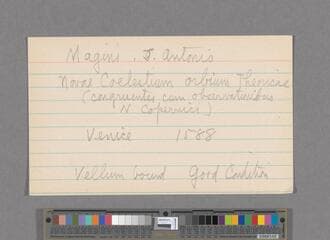 Magini . J. Antonio
Novae Coelestium orbium Theoricae
(congruentes cum observationibus
N. Copernici)
Venice 1588
Vellum bound Good Condition